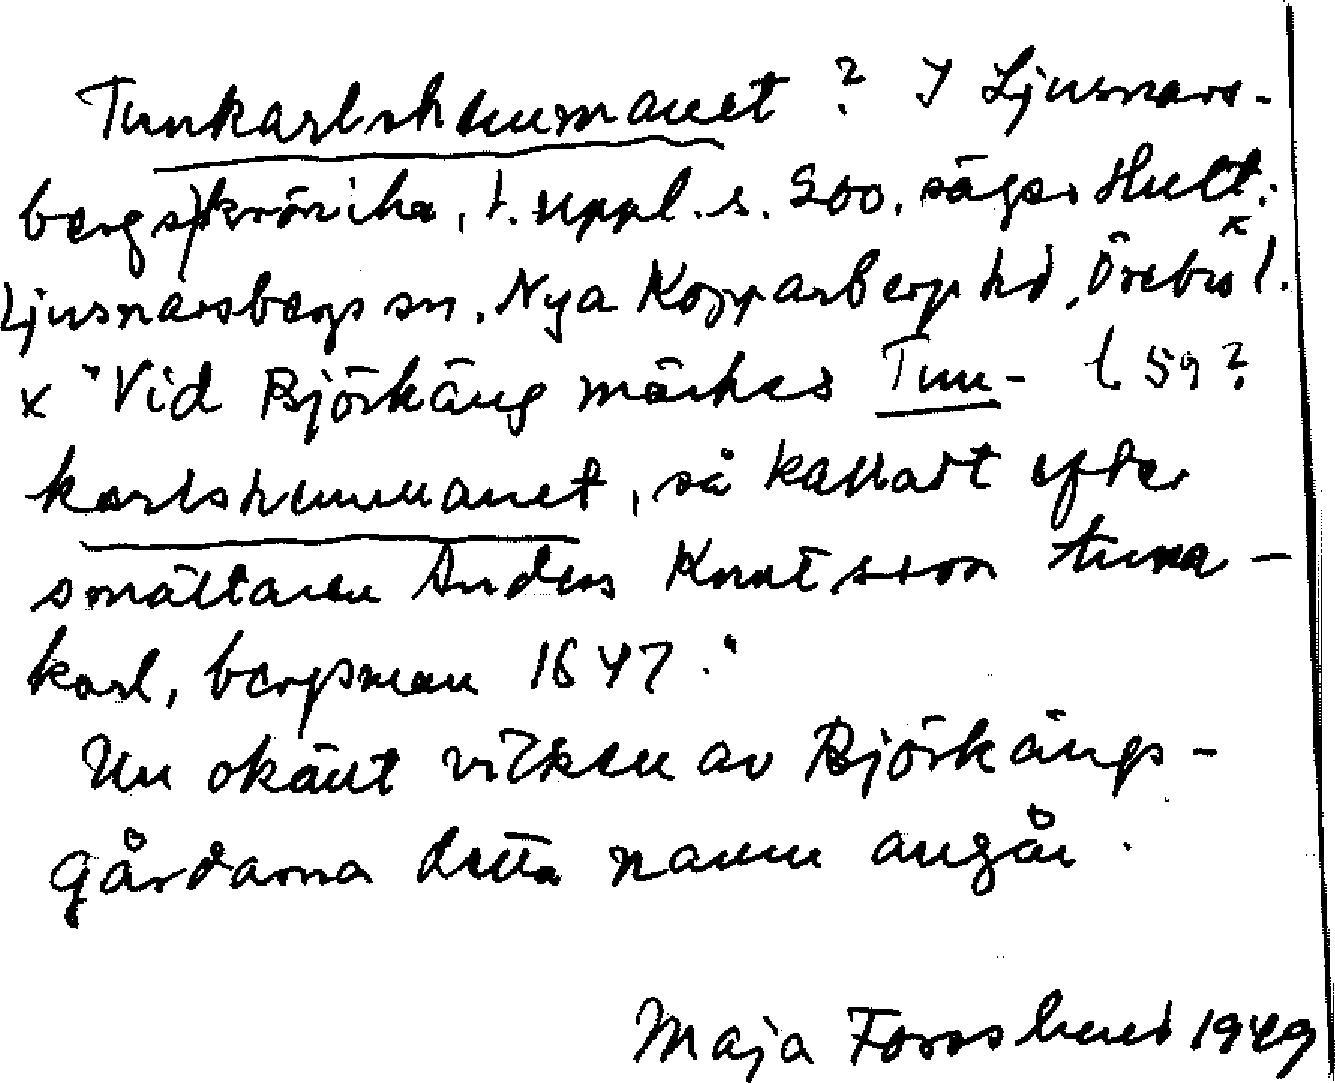 Tunkarlshemmanet ? I Ljusnars-
bergskrönika, 1. uppl. s. 200, säger Hult:
Ljusnarsbergs sn, Nya Kopparbergs hd, Örebro l.
x "Vid Björkäng märkes Tun- l 59?
karlshemmanet, så kalladt efter
smältaren Anders Knutsson tuna-
karl, bergsman 1647."
Nu okänt vilken av Björkängs-
gårdarna detta namn angår.
Maja Forsslund 1949